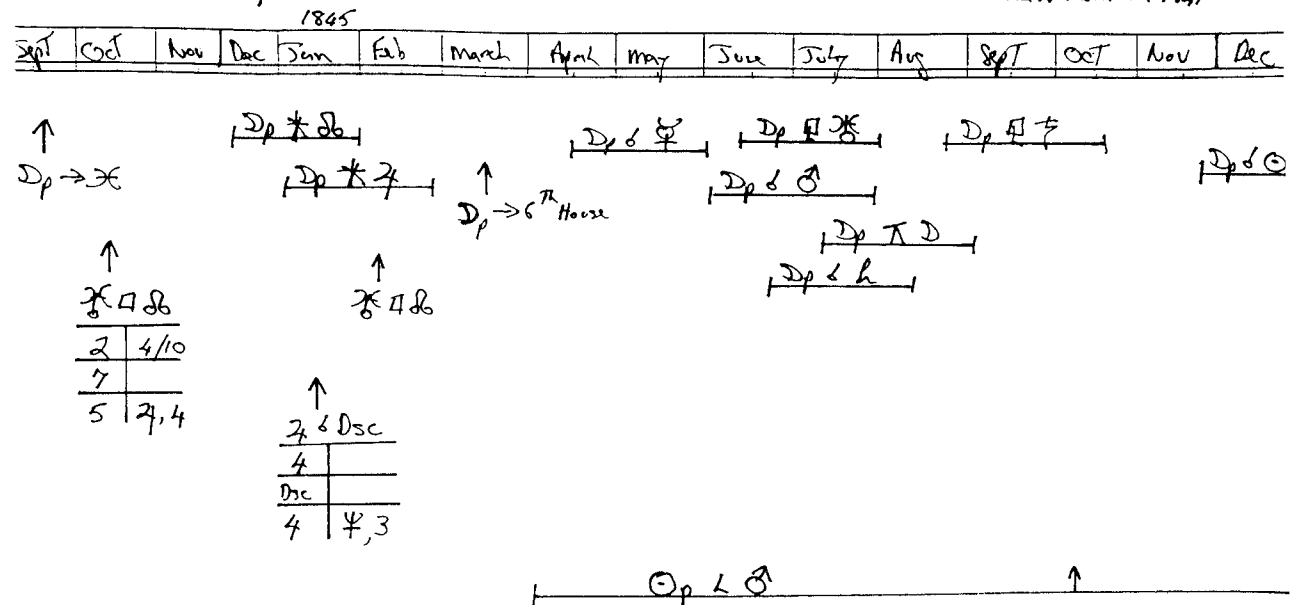 1845
Sept Oct Nov Dec Jan Feb March April May June July Aug Sept Oct Nov Dec
☽p ⚹ ☊
☽p ☌ ☿
☽p □ ♅
☽p □ ♄
☽p → ♓
☽p ⚹ ♃
☽p → 6th House
☽p ☌ ♂
☽p ☌ ☉
☽p ⚻ ☽
☽p ☌
♅ □ ☊
♅ □ ☊
2 4/10
7
5 ♃, 4
♃ ☌ Dsc
4
Dsc
4 ♆, 3
☉p ∠ ♂